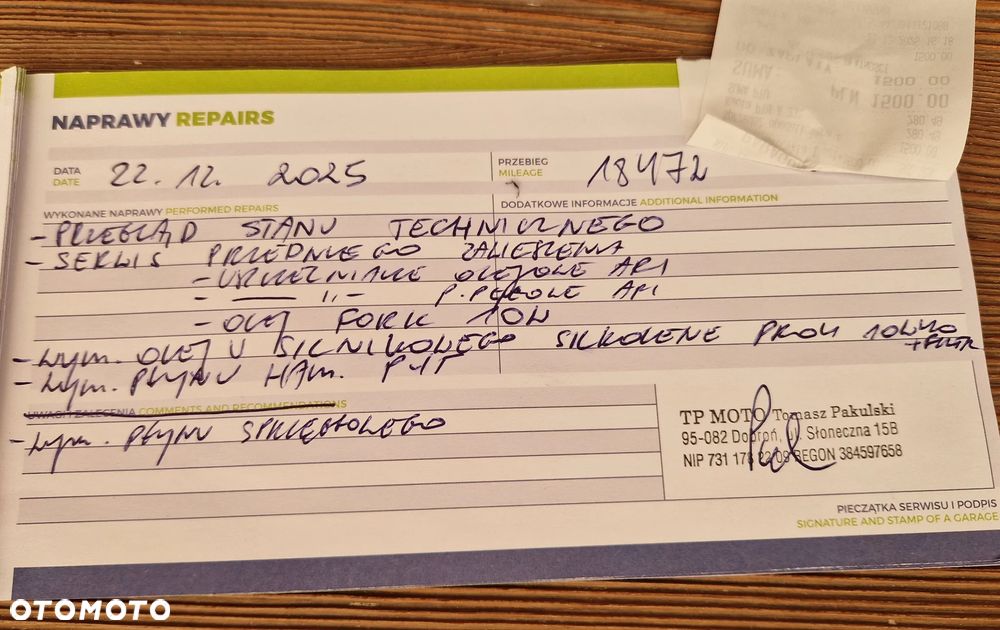 NAPRAWY REPAIRS
DATA
DATE
22. 12. 2025
PRZEBIEG
MILEAGE
18472
WYKONANE NAPRAWY PERFORMED REPAIRS
DODATKOWE INFORMACJE ADDITIONAL INFORMATION
- PRZEGLĄD STANU TECHNICZNEGO
- SERWIS PRZEDNIEGO ZAWIESZENIA
- USZCZELNIACZE OLEJOWE ARI
- —— 11 - P. PYŁOWE ARI
- OLEJ FORK 10W
- WYM. OLEJ U SILNIKOWEGO SILKOLENE PRO4 10W40
+ FILTR
- WYM. PŁYNU HAM. P+T
UWAGI I ZALECENIA COMMENTS AND RECOMMENDATIONS
- WYM. PŁYNU SPRZĘGŁOWEGO
TP MOTO Tomasz Pakulski
95-082 Dobroń, ul. Słoneczna 15B
NIP 731 178 22 09 REGON 384597658
PIECZĄTKA SERWISU I PODPIS
SIGNATURE AND STAMP OF A GARAGE
SUMA: 1500 00
1500.00
OTOMOTO